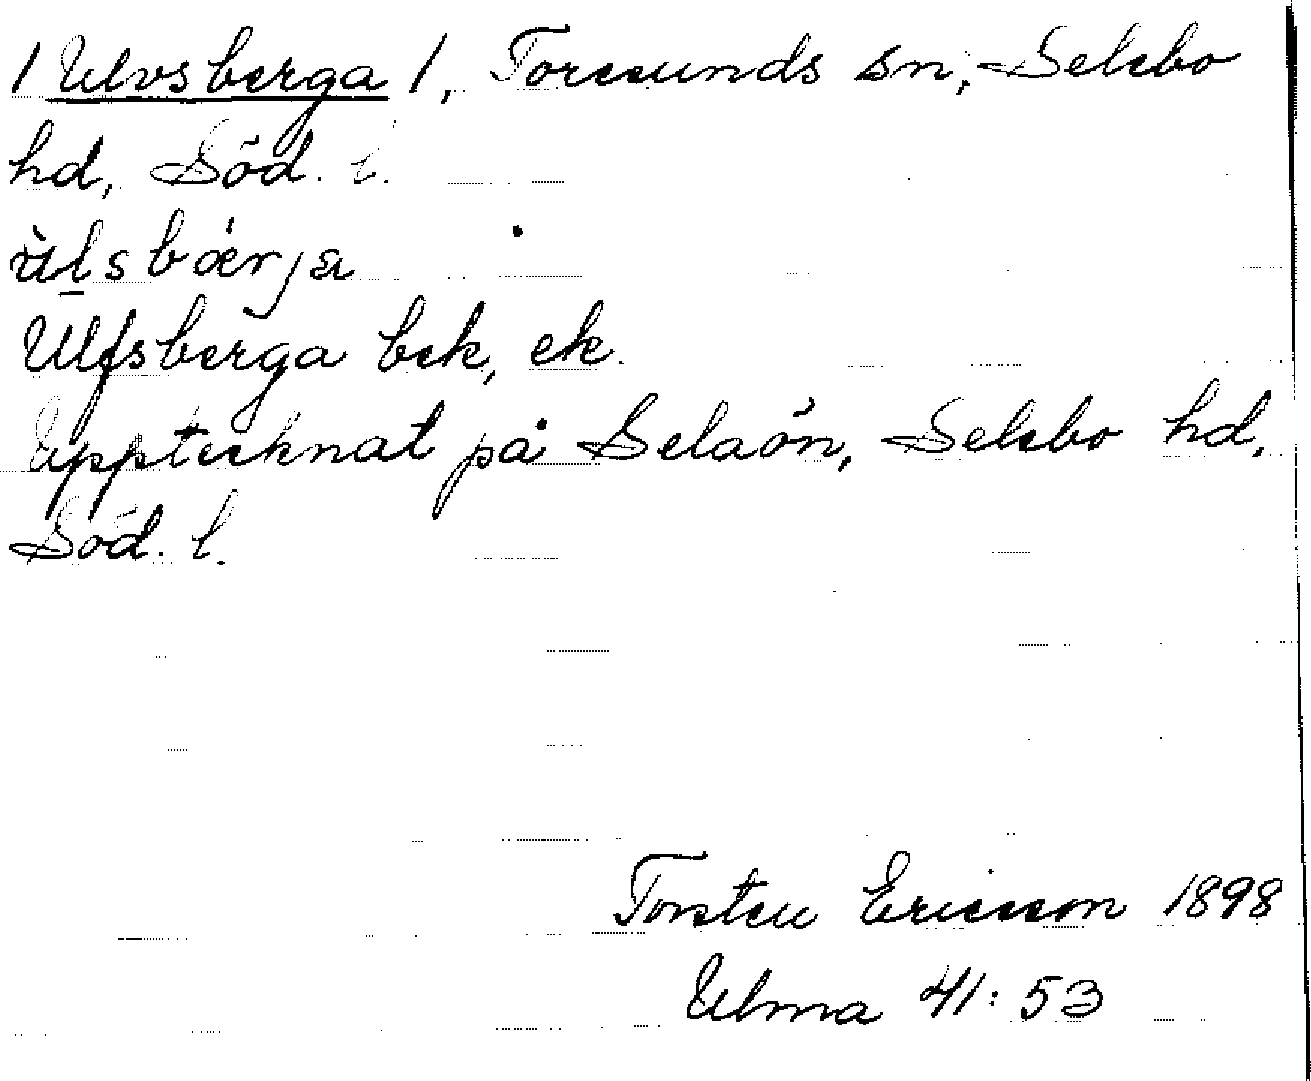 / Ulvsberga /, Toresunds sn, Selebo
hd, Söd. l.
ùlsbærja
Ulfsberga bek, ek.
Upptecknat på Selaön, Selebo hd,
Söd. l.
Torsten Ericsson 1898
Ulma 41:53